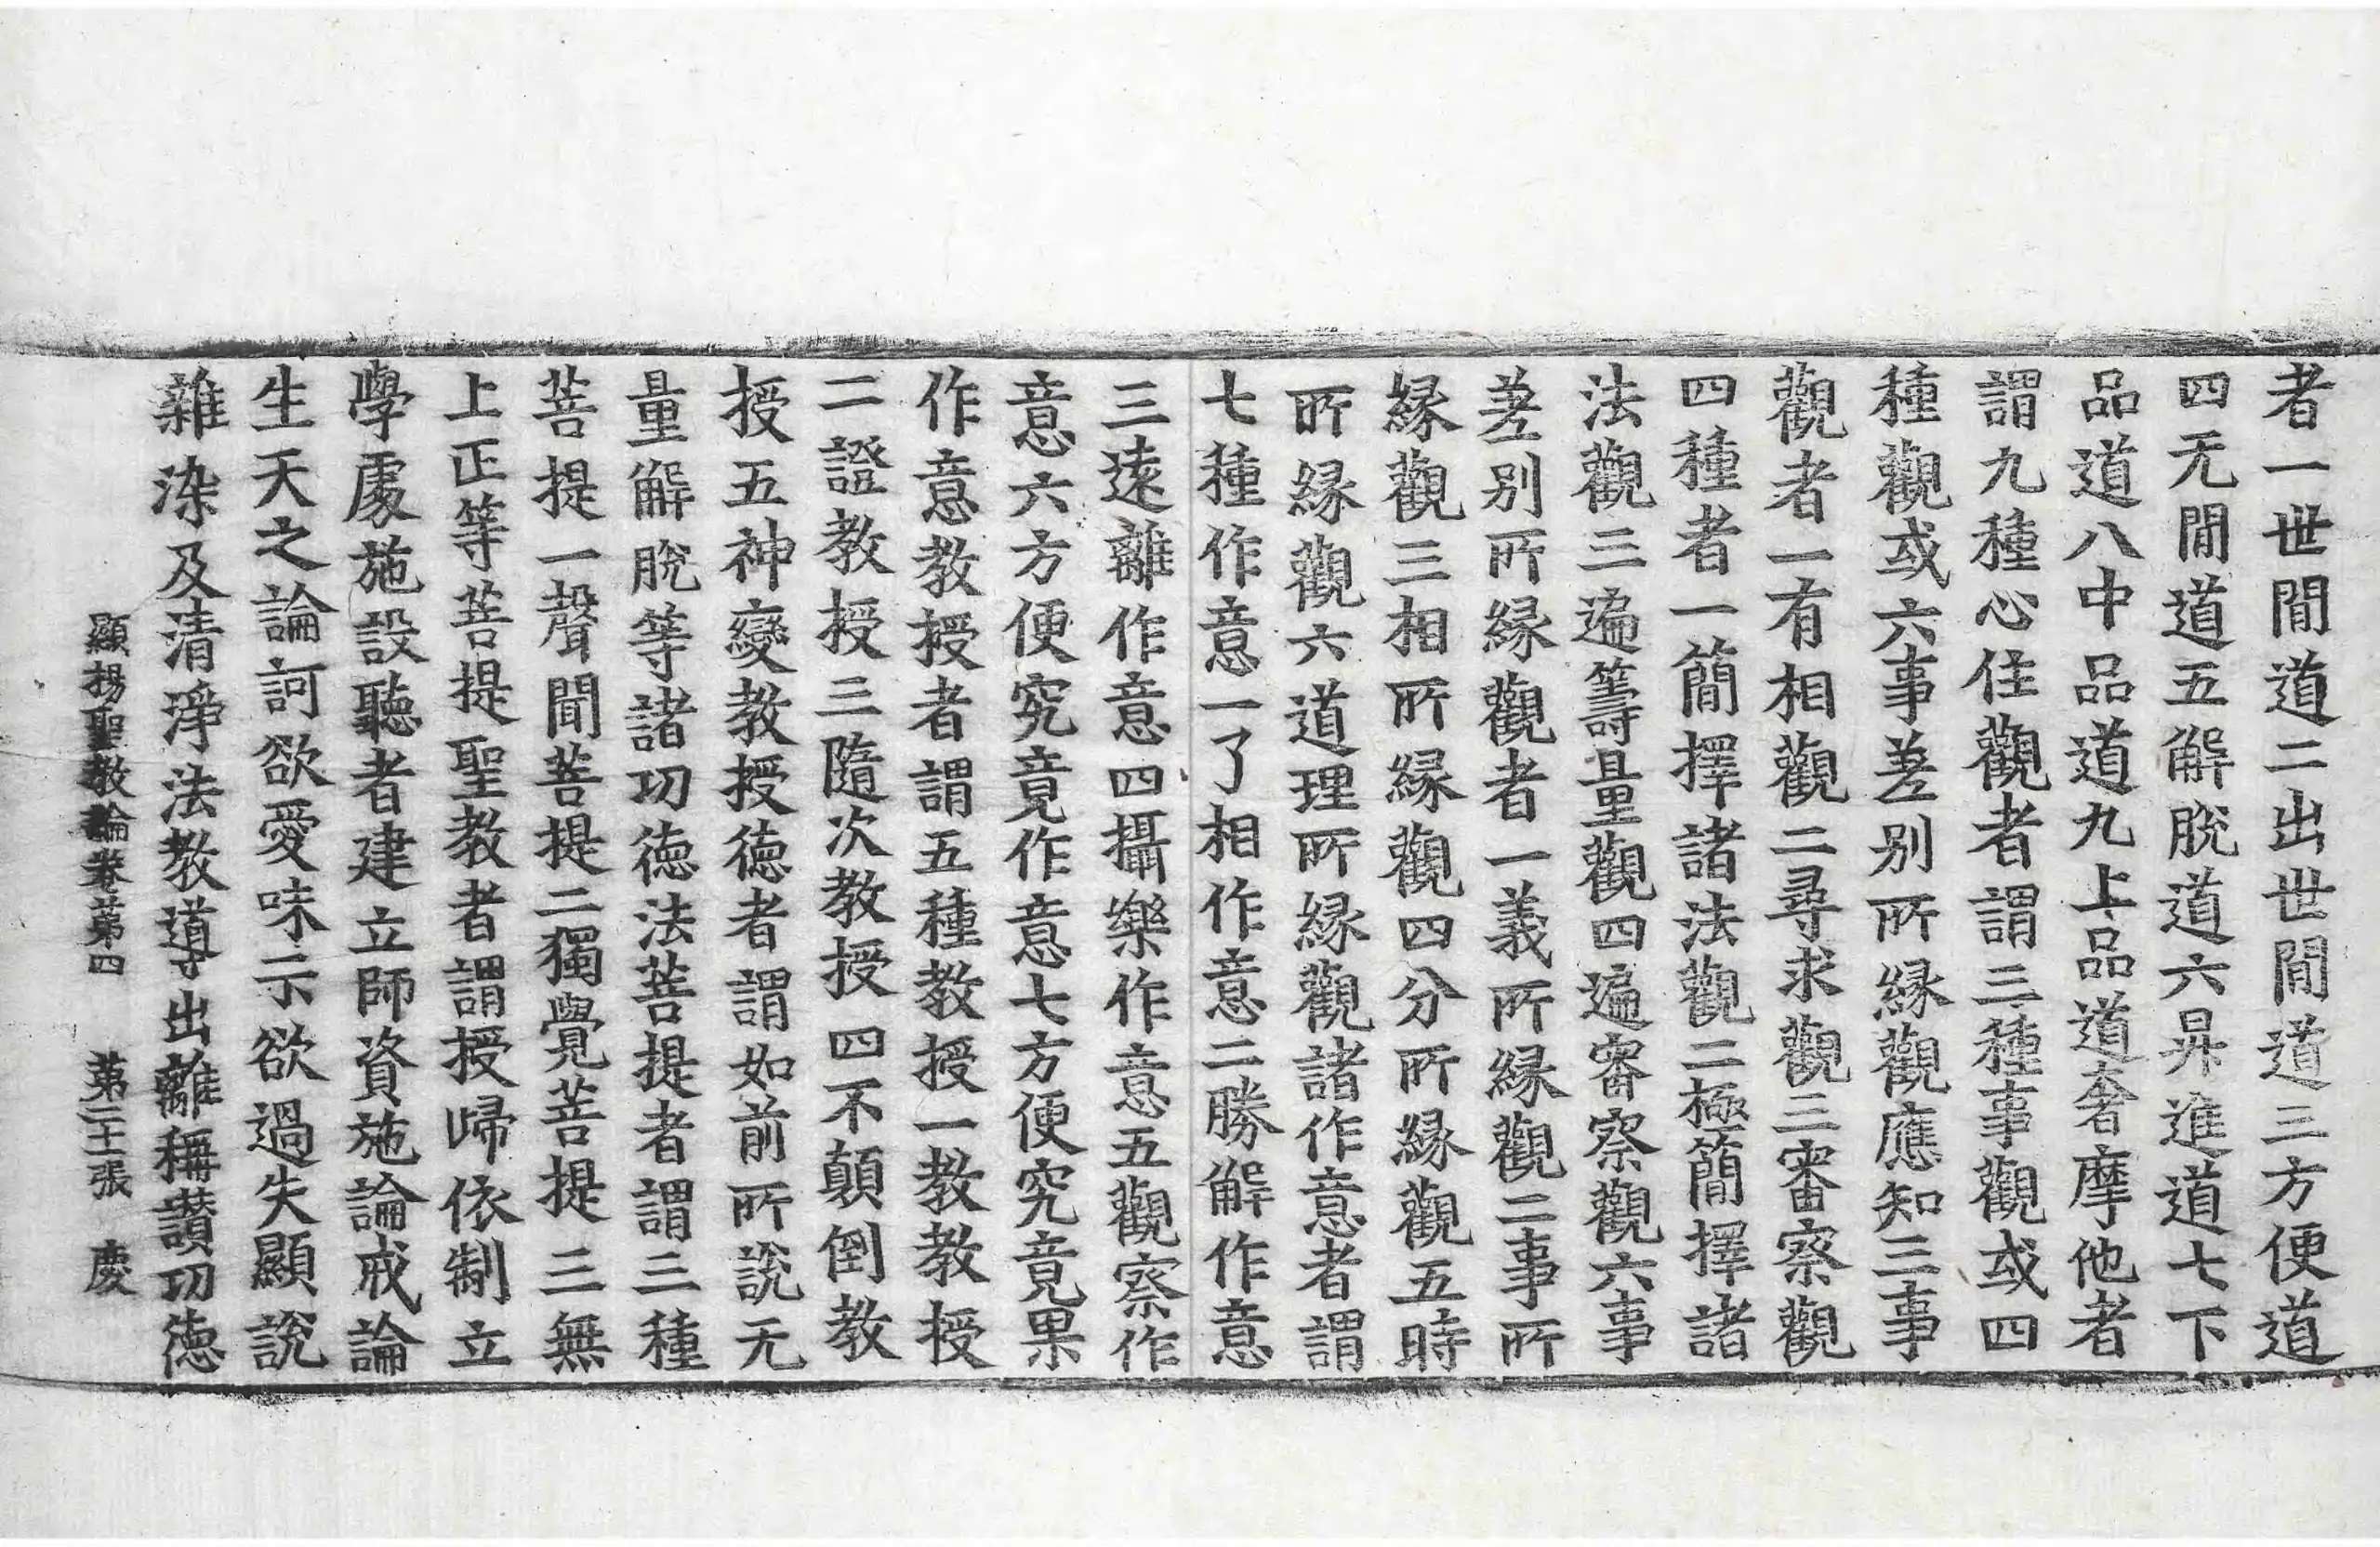 者一世間道二出世間道三方便道
四无間道五解脫道六昇進道七下
品道八中品道九上品道奢摩他者
謂九種心住觀者謂三種事觀或四
種觀或六事差别所緣觀應知三事
觀者一有相觀二尋求觀三審察觀
四種者一簡擇諸法觀二極簡擇諸
法觀三遍籌量觀四遍審察觀六事
差别所緣觀者一義所緣觀二事所
緣觀三相所緣觀四分所緣觀五時
所緣觀六道理所緣觀諸作意者謂
七種作意一了相作意二勝解作意
三遠離作意四攝樂作意五觀察作
意六方便究竟作意七方便究竟果
作意教授者謂五種教授一教教授
二證教授三隨次教授四不顛倒教
授五神變教授德者謂如前所說无
量解脫等諸功德法菩提者謂三種
菩提一聲聞菩提二獨覺菩提三無
上正等菩提聖教者謂授歸依制立
學處施設聽者建立師資施論戒論
生天之論訶欲愛味示欲過失顯說
雜染及清淨法教導出離稱讃功德
顯揚聖教論卷第四 第二十張 慶